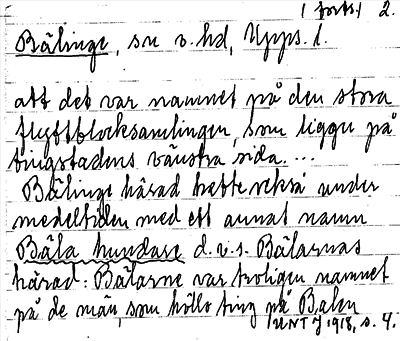 (forts.) 2.
Bälinge, sn o. hd, Upps. l.
att det var namnet på den stora
flyttblocksamlingen, som ligger på
tingstadens vänstra sida. ...
Bälinge härad hette också under
medeltiden med ett annat namn
Bäla hundare d.v.s. Bälarnas
härad. Bälarne var troligen namnet
på de män, som höllo ting på Balen
UNT 1918, s. 4.